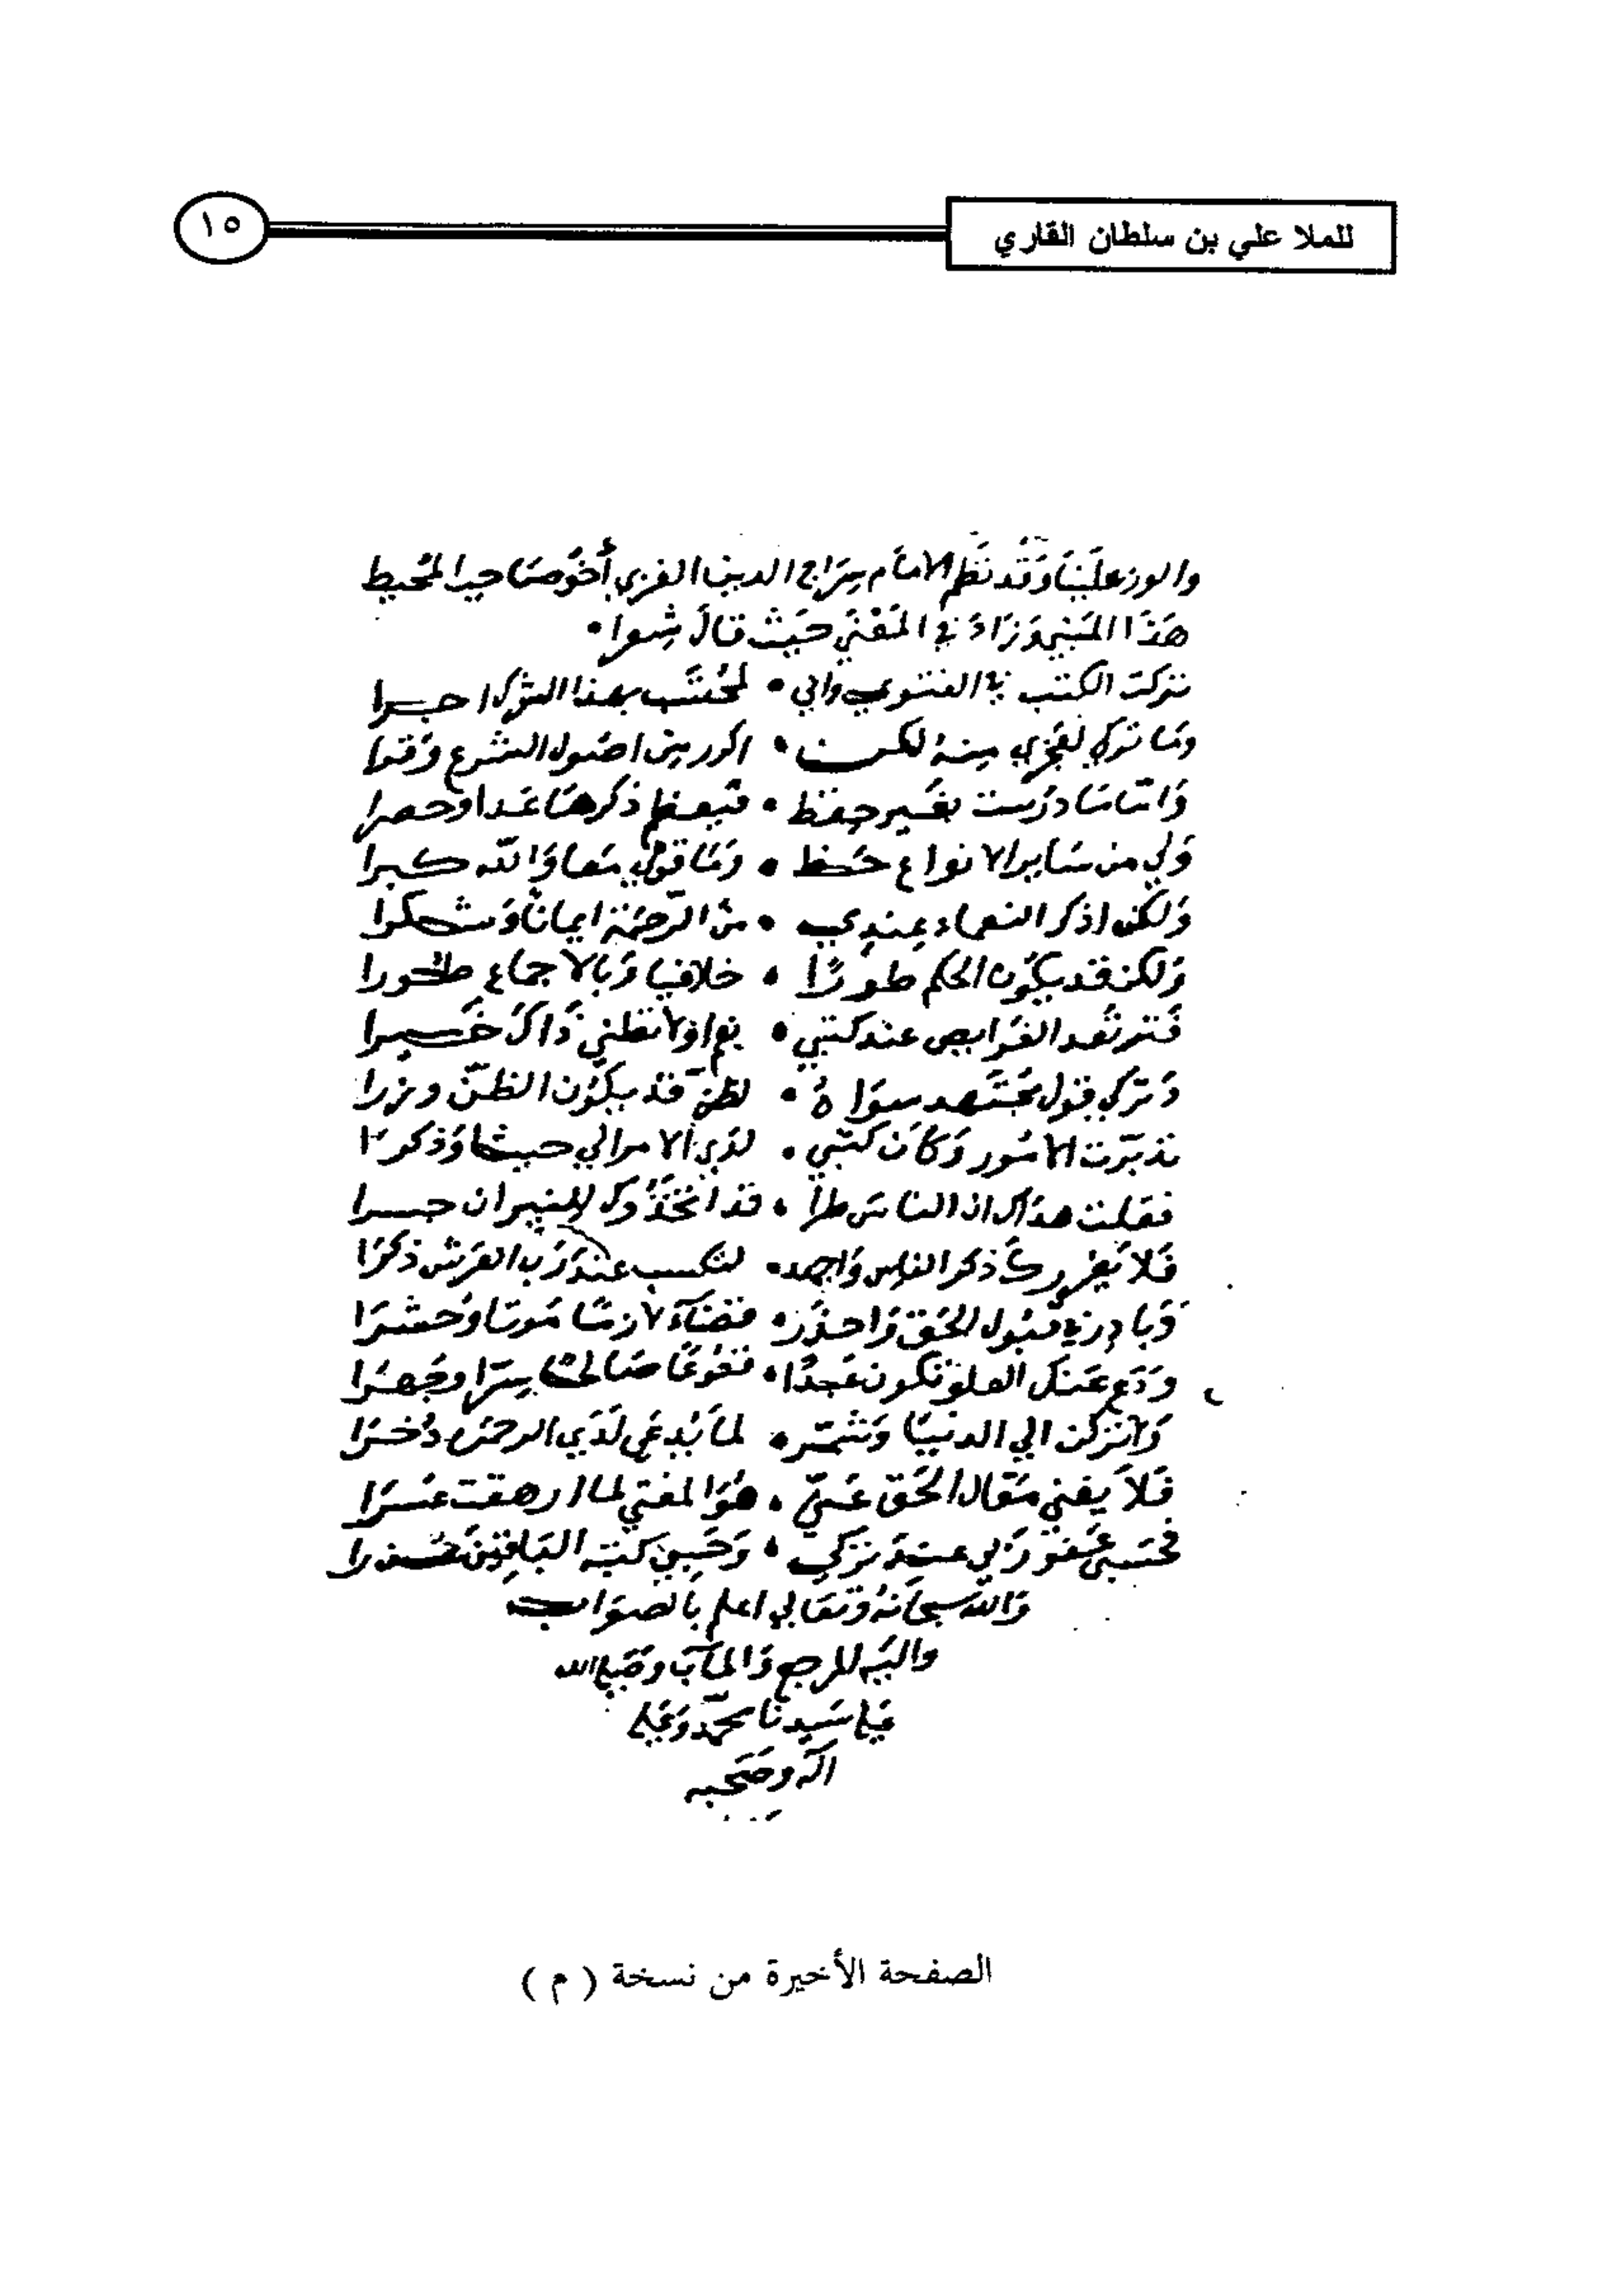 للملا علي بن سلطان القاري
١٥
والوزر علينا وقد نظم الامام سراج الدين الغزي أخو صاحب المحيط
هذا المبني وزاد في المعني حيث قال شعرا
تركت الكتب في الفتوي واني • لمحتسب بهذا الترك اجرا
وما تركي لعجزي منه لكن • اكرر من اصول الشرع وقرا
واما ما درست بغير حفظ • فيعظم ذكرها عدا وحصرا
ولي من ساير الانواع حظ • وما قولي معا والله كبرا
ولكن اذكر النعماء عندي • من الرحمن ايمانا وشكرا
ولكن قد يكون الحكم طورا • خلافيا وبالاجماع طورا
عند كتبي • نعم اولا تظنني ذاك خسيرا
وتركي قول مجتهد سواه • لظن قد يكون الظن وزرا
تدبرت الامور وكان كتبي • لذي الامر الي حيثا وذكرا
فقلت هداك ان الناس طرا • قد اتخذوك للنيران جسرا
فلا يغررك ذكر الناس واجهد • لتكسب عند رب العرش ذكرا
وبادر في قبول الحق واحذر • قضاء لازما موتا وحشرا
ودع عنك العلو تكون عبدا • تقوعا صالحا سرا وجهرا
ولا تركن الي الدنيا وشمر • لما يدعي لدي الرحمن ذخرا
فلا يغني مقال الحق عني • هو المفتي لما ارهقت عسرا
فحسبي عفو ربي عند تركي • وحسبي كتبه الباقين عذرا
والله سبحانه وتعالي اعلم بالصواب
واليه المرجع والمآب وصلي الله
علي سيدنا محمد وعلي
اله وصحبه
الصفحة الأخيرة من نسخة ( م )